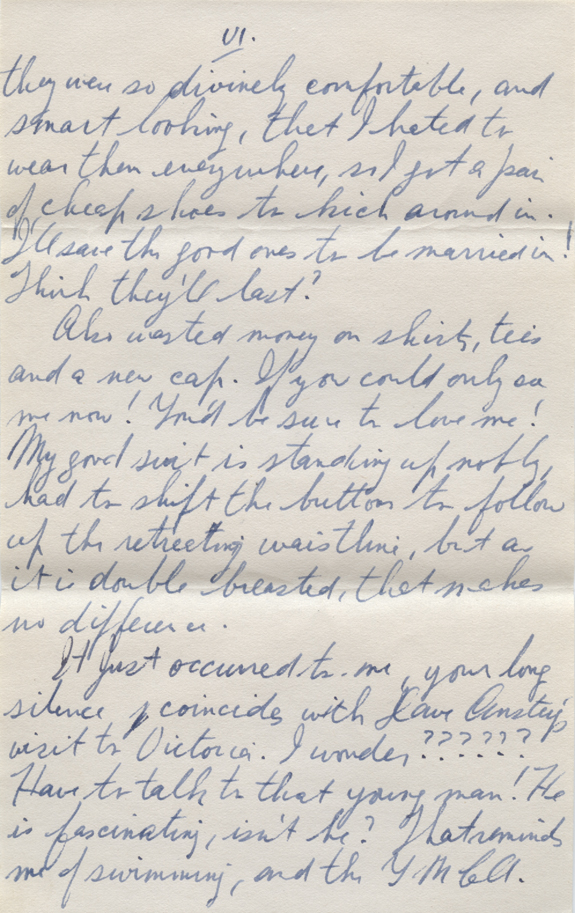 VI.
they were so divinely comfortable, and
smart looking, that I hated to
wear them everywhere, so I got a pair
of cheap shoes to kick around in.
I'll save the good ones to be married in!
Think they'll last?
Also wasted money on shirts, ties
and a new cap. If you could only see
me now! You'd be sure to love me!
My good suit is standing up nobly,
had to shift the buttons to follow
up the retreating waistline, but as
it is double breasted, that makes
no difference.
It just occurred to me, your long
silence coincides with Dave Anstey's
visit to Victoria. I wonder??????
Have to talk to that young man! He
is fascinating, isn't he? That reminds
me of swimming, and the YMCA.